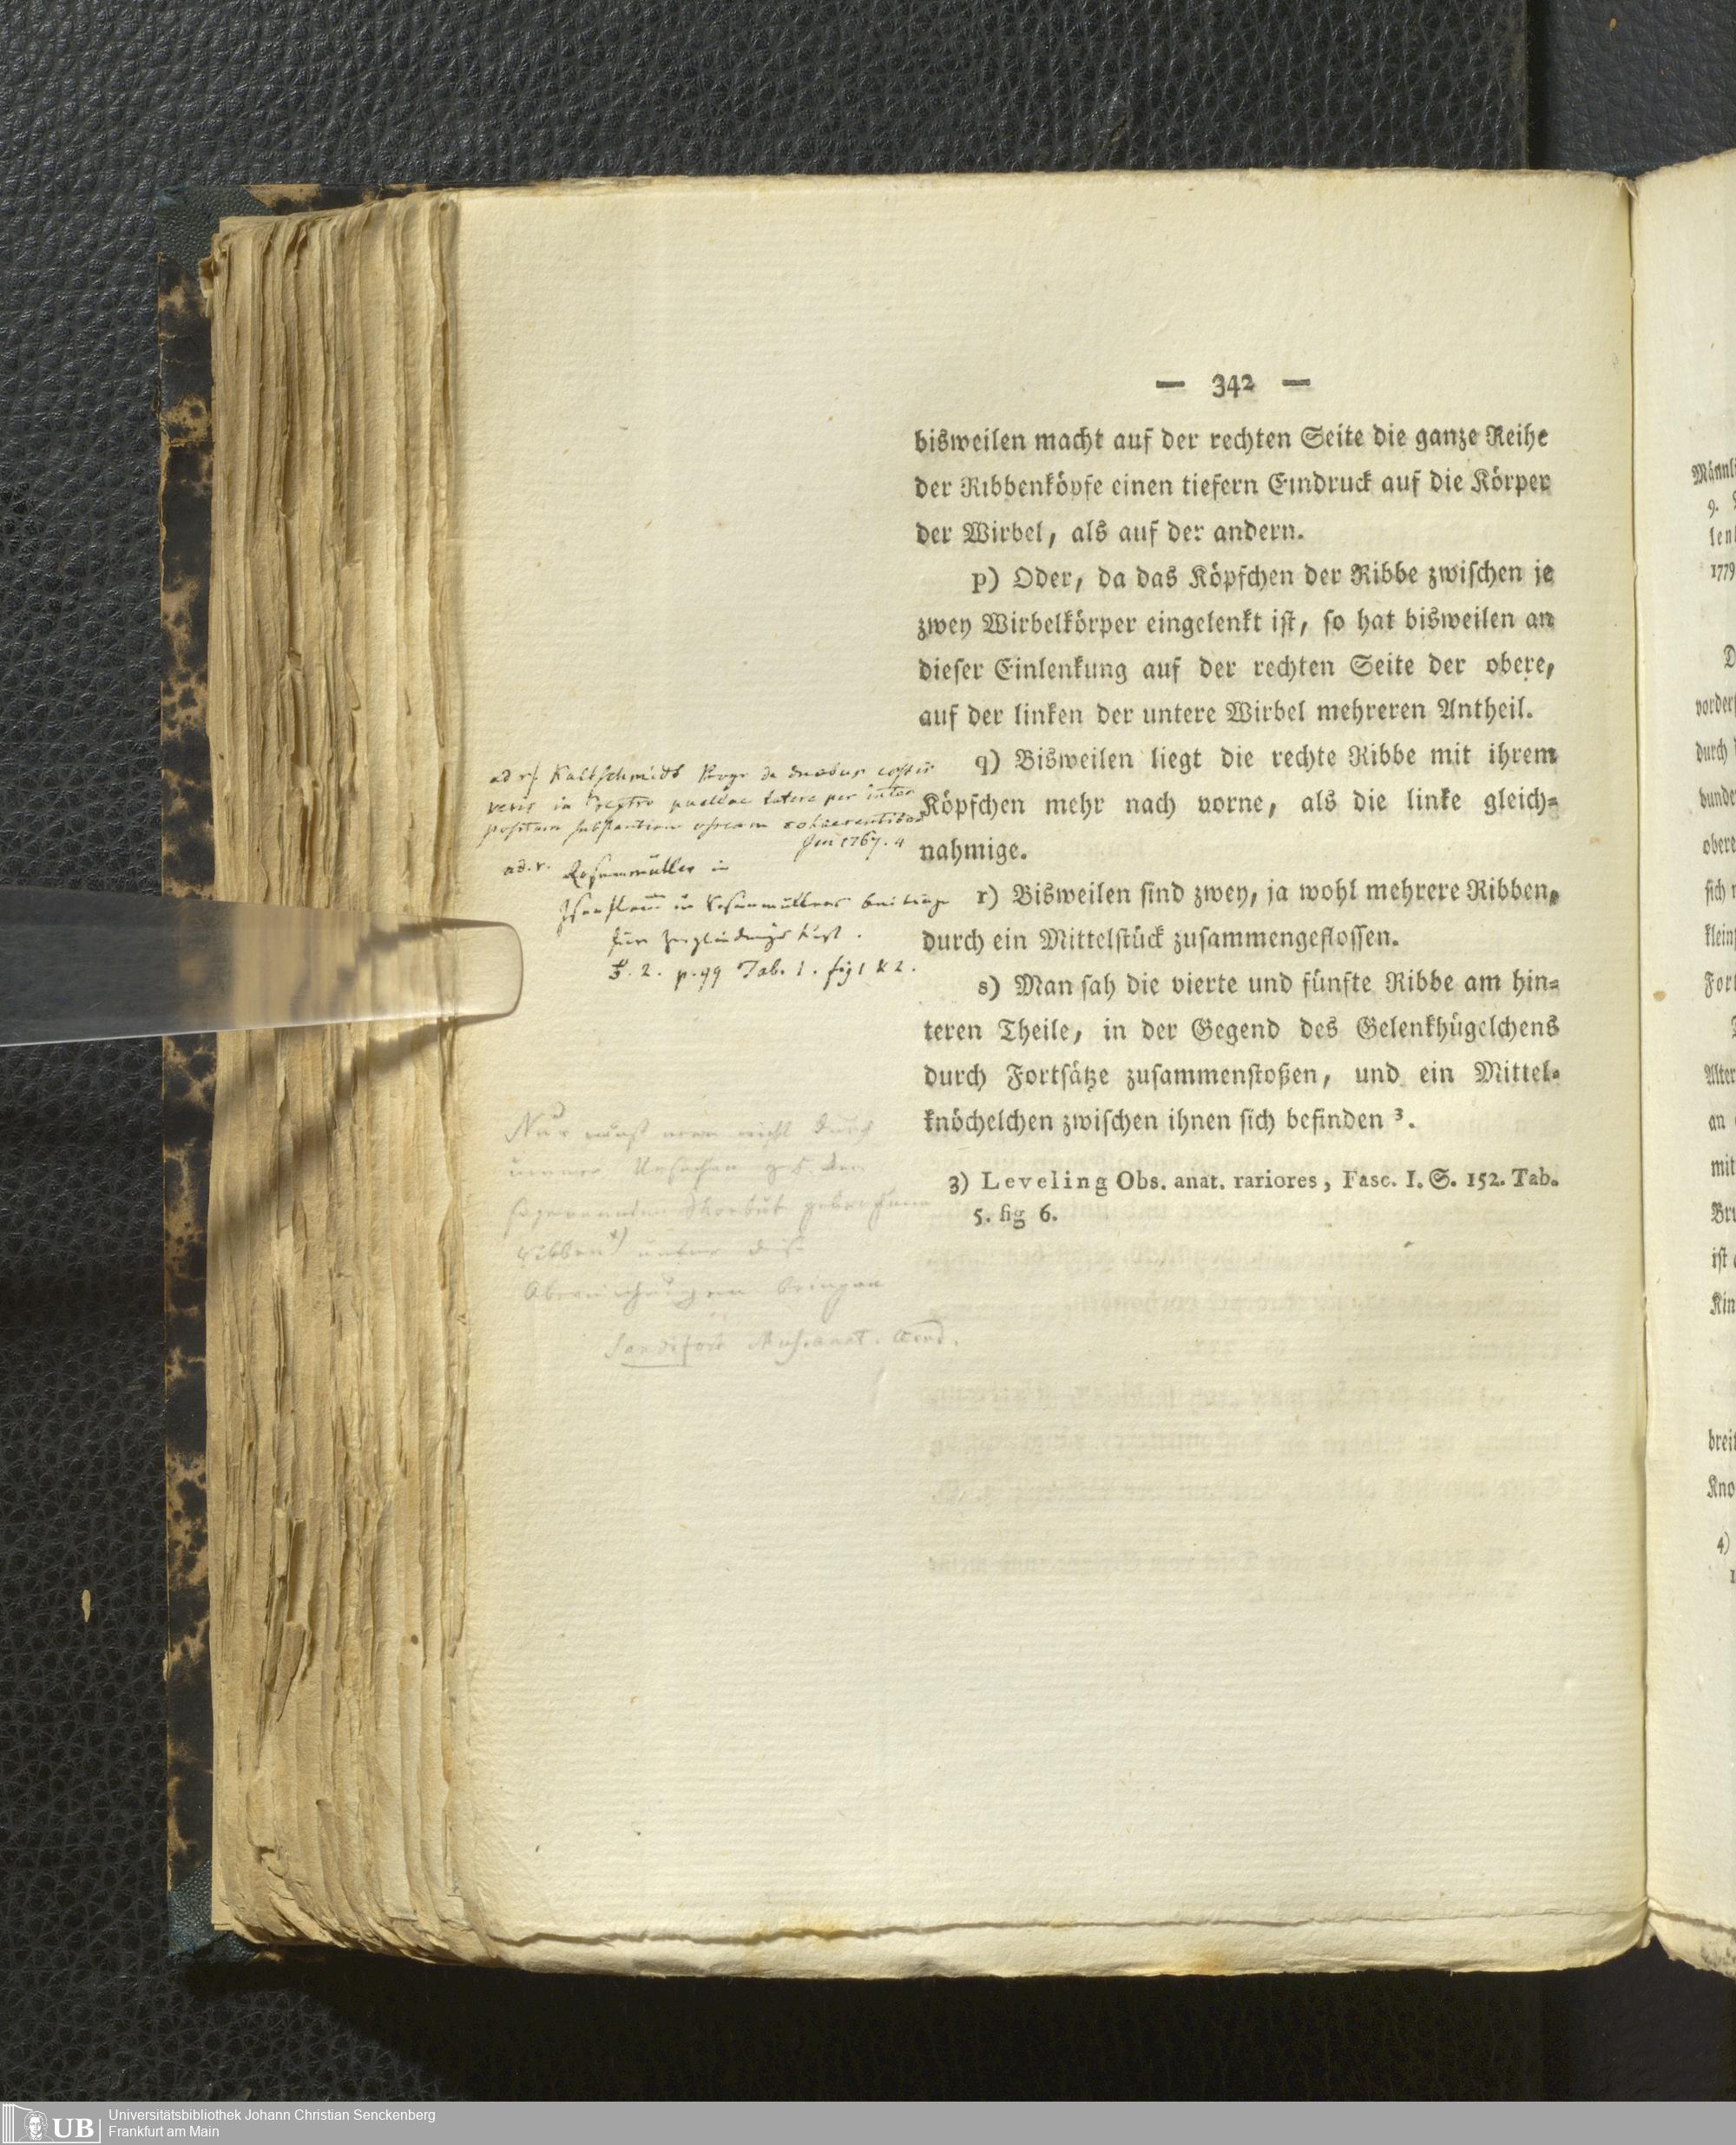 — 342 —
bisweilen macht auf der rechten Seite die ganze Reihe
der Ribbenköpfe einen tiefern Eindruck auf die Körper
der Wirbel, als auf der andern.
p) Oder, da das Köpfchen der Ribbe zwischen je
zwey Wirbelkörper eingelenkt ist, so hat bisweilen an
dieser Einlenkung auf der rechten Seite der obere,
auf der linken der untere Wirbel mehreren Antheil.
q) Bisweilen liegt die rechte Ribbe mit ihrem
Köpfchen mehr nach vorne, als die linke gleich-
nahmige.
r) Bisweilen sind zwey, ja wohl mehrere Ribben,
durch ein Mittelstück zusammengeflossen.
s) Man sah die vierte und fünfte Ribbe am hin-
teren Theile, in der Gegend des Gelenkhügelchens
durch Fortsätze zusammenstoßen, und ein Mittel-
knöchelchen zwischen ihnen sich befinden ³.
3) Leveling Obs. anat. rariores, Fasc. I. S. 152. Tab.
5. fig 6.
ad r) Kaltschmidt Progr de duabus costis
veris in dextro puellae latere per inter
positam substantiam osseam cohaerentibus
Jen 1767. 4
ad. r. Rosenmüller in
Isenflamm u Rosenmüllers beiträge
für Zergliederungs Kunst.
2. p. 99 Tab. 1. fig 1 & 2.
Nur muß man nicht durch
innere Ursachen z. B. den
sogenannten Skorbut gebrochene
Ribben unter diese
Abweichungen bringen
Sandifort Mus. anat. Acad.
Universitätsbibliothek Johann Christian Senckenberg
Frankfurt am Main
UB